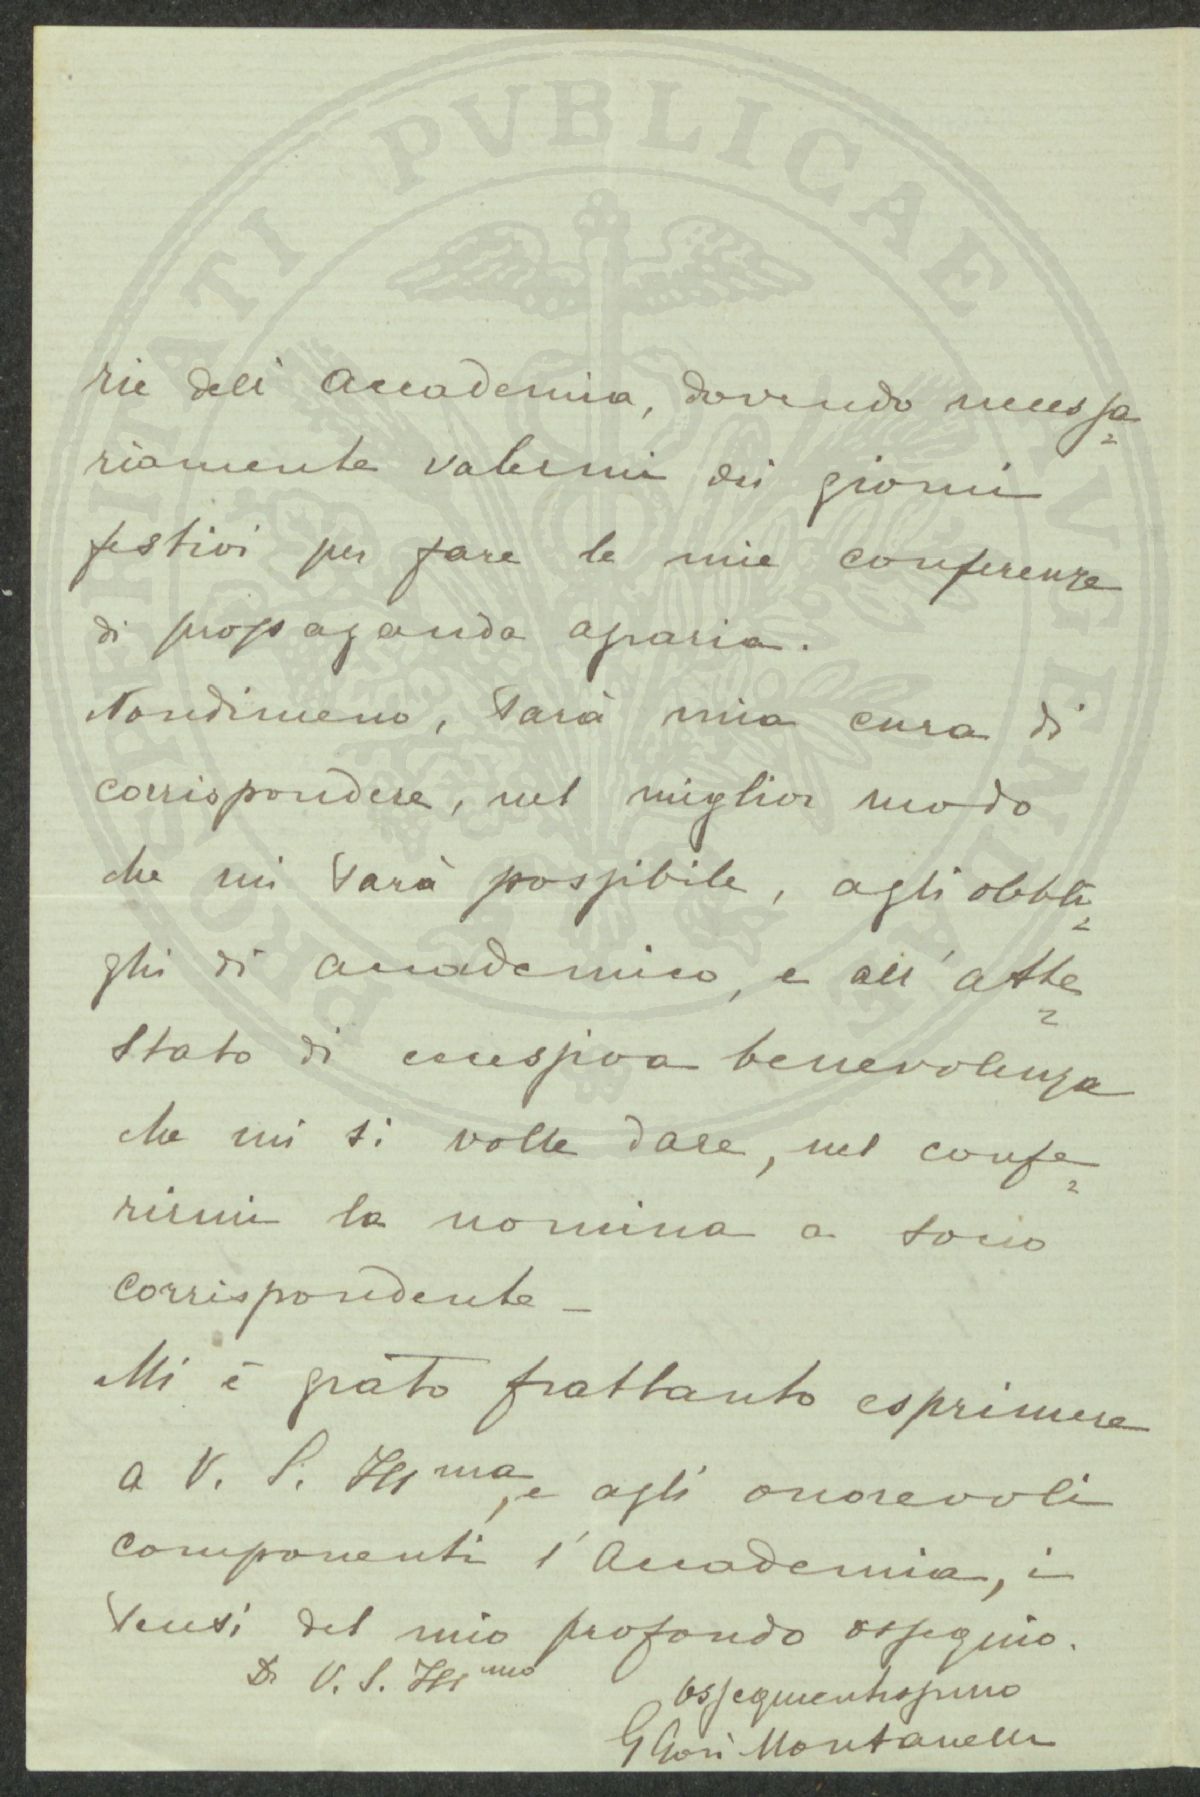 PROSPERITATI PVBLICAE AVGENDAE
rie dell' Accademia, dovendo necessa=
riamente valermi dei giorni
festivi per fare le mie conferenze
di propaganda agraria.
Nondimeno, sarà mia cura di
corrispondere, nel miglior modo
che mi sarà possibile, agli obbli=
ghi di accademico, e all' atte=
stato di eccessiva benevolenza
che mi si volle dare, nel confe=
rirmi la nomina a socio
corrispondente –
Mi è grato frattanto esprimere
a V. S. Ill ma, e agli onorevoli
componenti l' Accademia, i
sensi del mio profondo ossequio.
Di V. S. Ill ma
Ossequientissimo
G Gori Montanelli